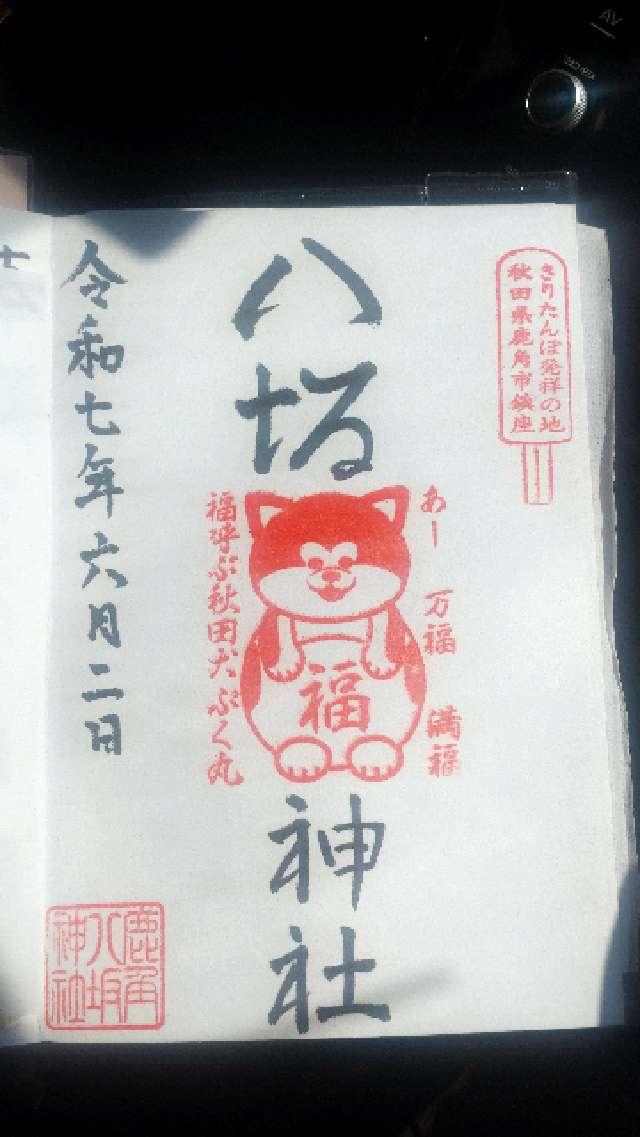 きりたんぽ発祥の地
秋田県鹿角市鎮座
あー 万福 満福
八坂
福
神社
福呼ぶ秋田犬ぷく丸
令和七年六月二日
鹿角
八坂
神社
士
AV